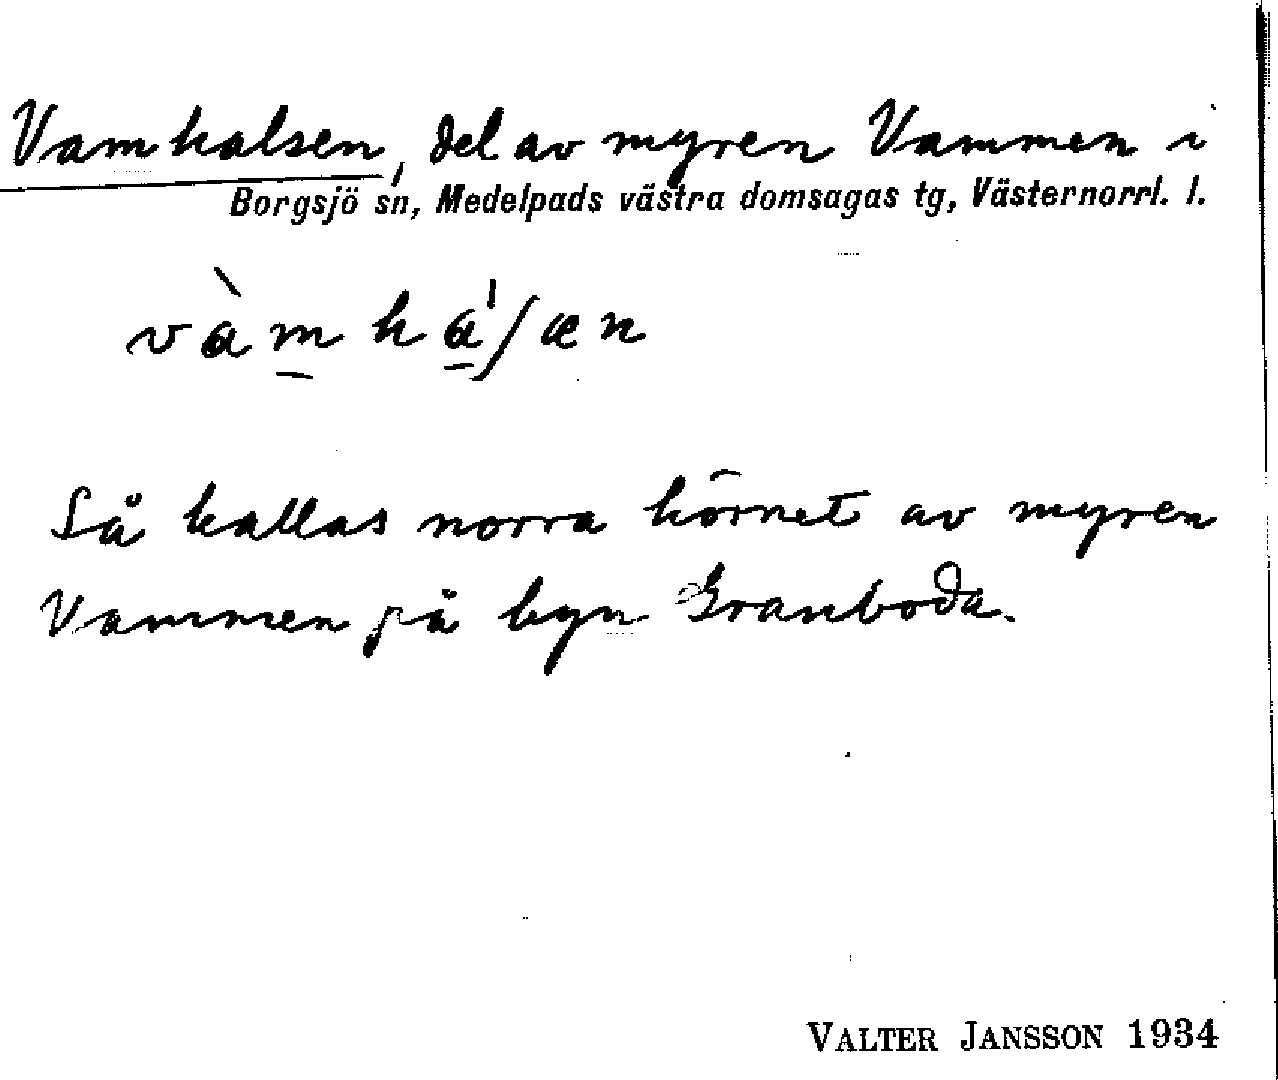 Vamhalsen, del av myren Vammen i
Borgsjö sn, Medelpads västra domsagas tg, Västernorrl. l.
vàmha̍ʃæn
Så kallas norra hörnet av myren
Vammen på byn Granboda.
VALTER JANSSON 1934